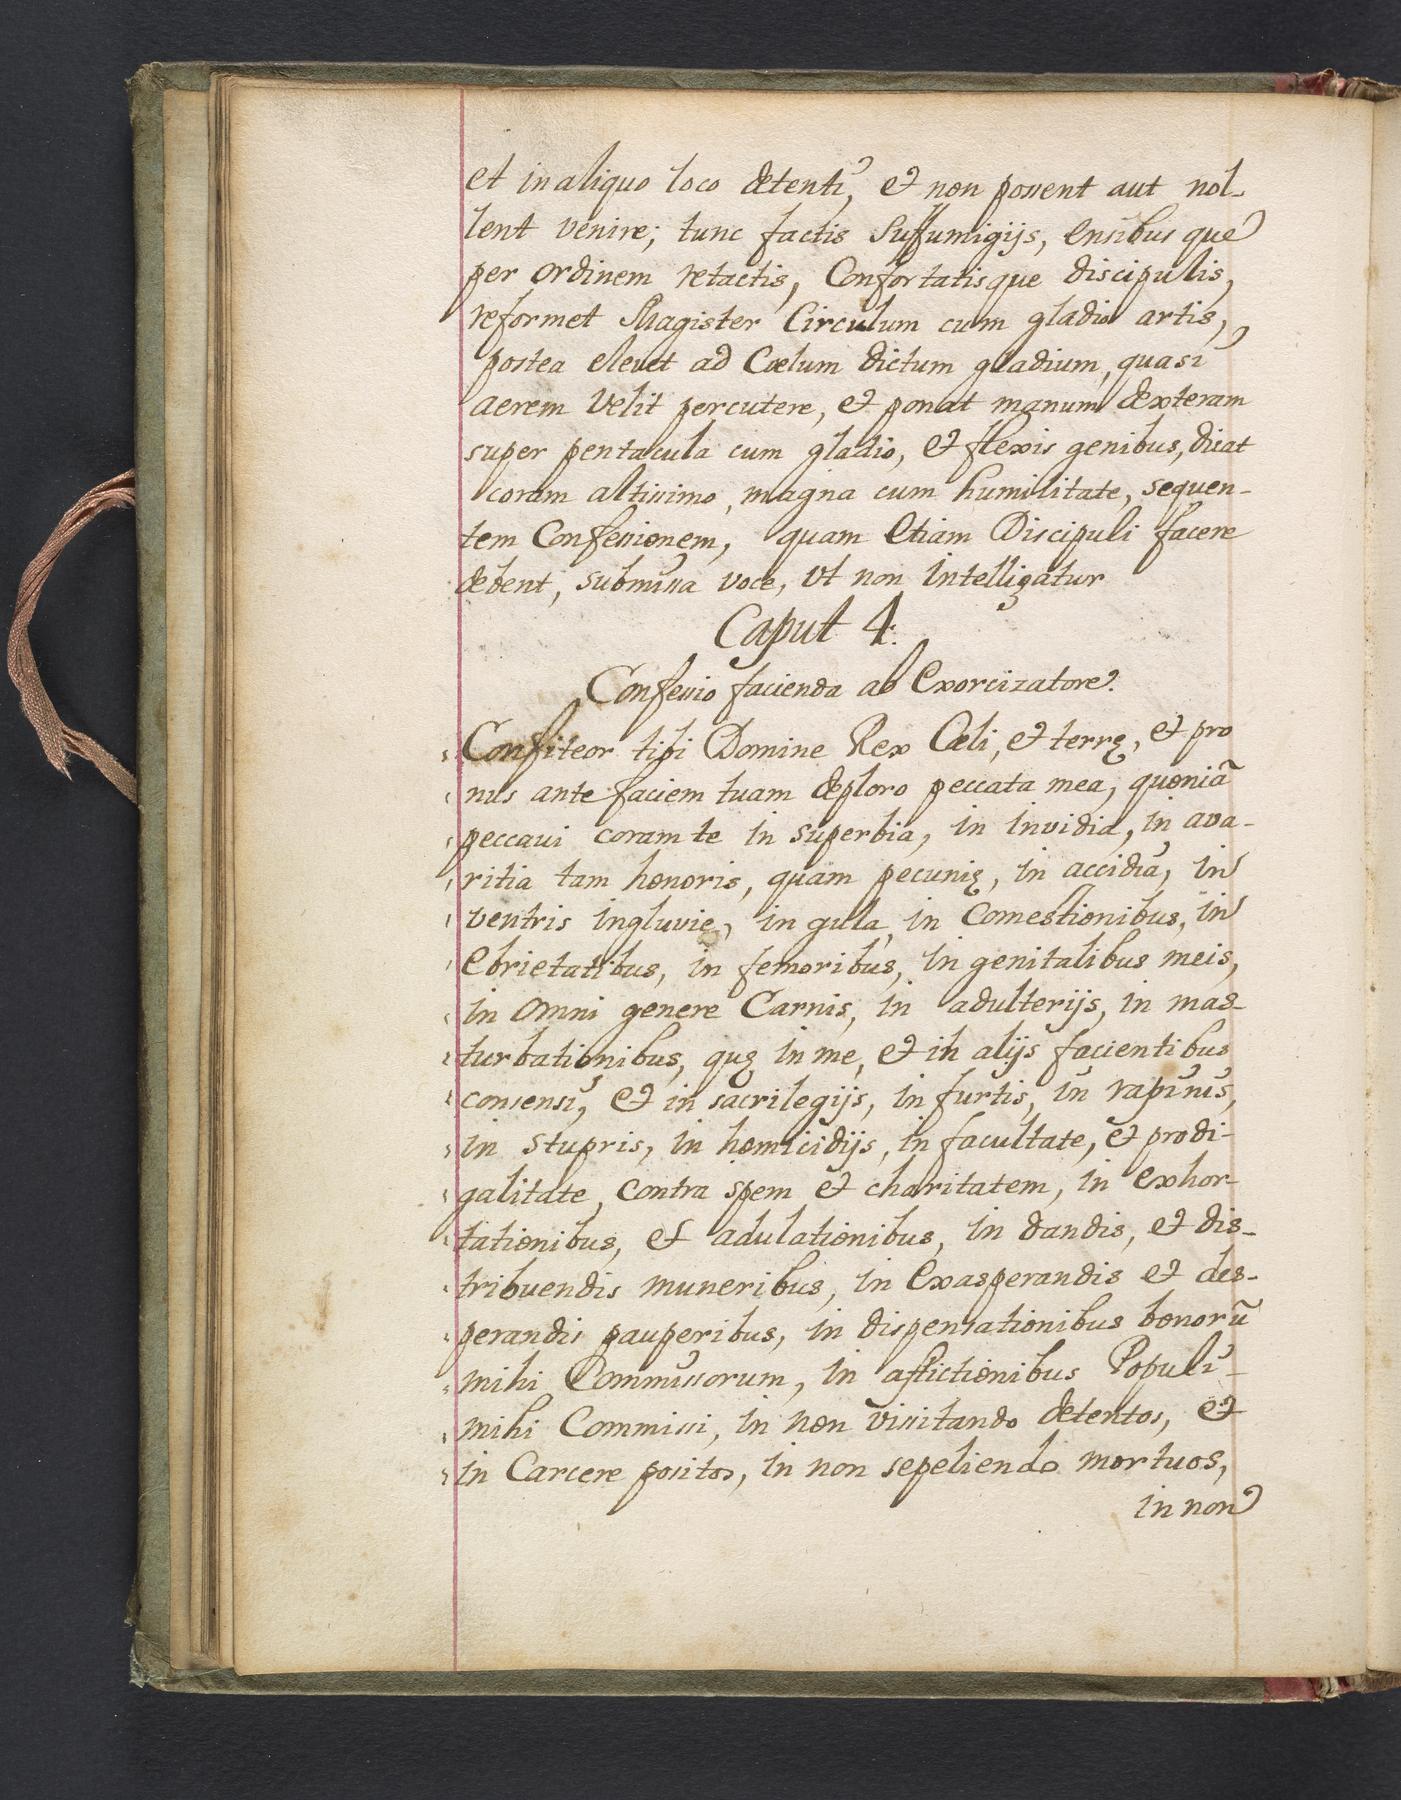 et in aliquo loco detenti, et non possent aut nol-
lent venire; tunc factis Suffumigijs, Ensibus que
per Ordinem retactis, Confortatisque discipulis,
reformet Magister Circulum cum gladio artis,
postea elevet ad Cœlum dictum gladium, quasi
aerem Velit percutere, et ponat manum dexteram
super pentacula cum gladio, et flexis genibus, dicat
coram altissimo, magna cum humilitate, sequen-
tem Confessionem, quam Etiam Discipuli facere
debent, submissa voce, Vt non Intelligatur
Caput 4:
Confessio facienda ab Exorcizatore.
Confiteor tibi Domine Rex Cœli, et terrę, et pro
nus ante faciem tuam deploro peccata mea, quoniā
peccaui coram te in superbia, in invidia, in ava-
ritia tam honoris, quam pecunię, in accidia, in
ventris ingluvie, in gula, in Comestionibus, in
Ebrietatibus, in femoribus, in genitalibus meis,
in Omni genere Carnis, in adulterijs, in mas-
turbationibus, quę in me, et in alijs facientibus
consensi, et in sacrilegijs, in furtis, in rapinis,
in stupris, in homicidijs, in facultate, et prodi-
galitate, contra spem et charitatem, in exhor-
tationibus, et adulationibus, in dandis, et dis-
tribuendis muneribus, in Exasperandis et des-
perandis pauperibus, in dispensationibus bonorū
mihi Commissorum, in afflictionibus Populi-
mihi Commissi, in non vissitando detentos, et
in Carcere positos, in non sepeliendo mortuos,
in non